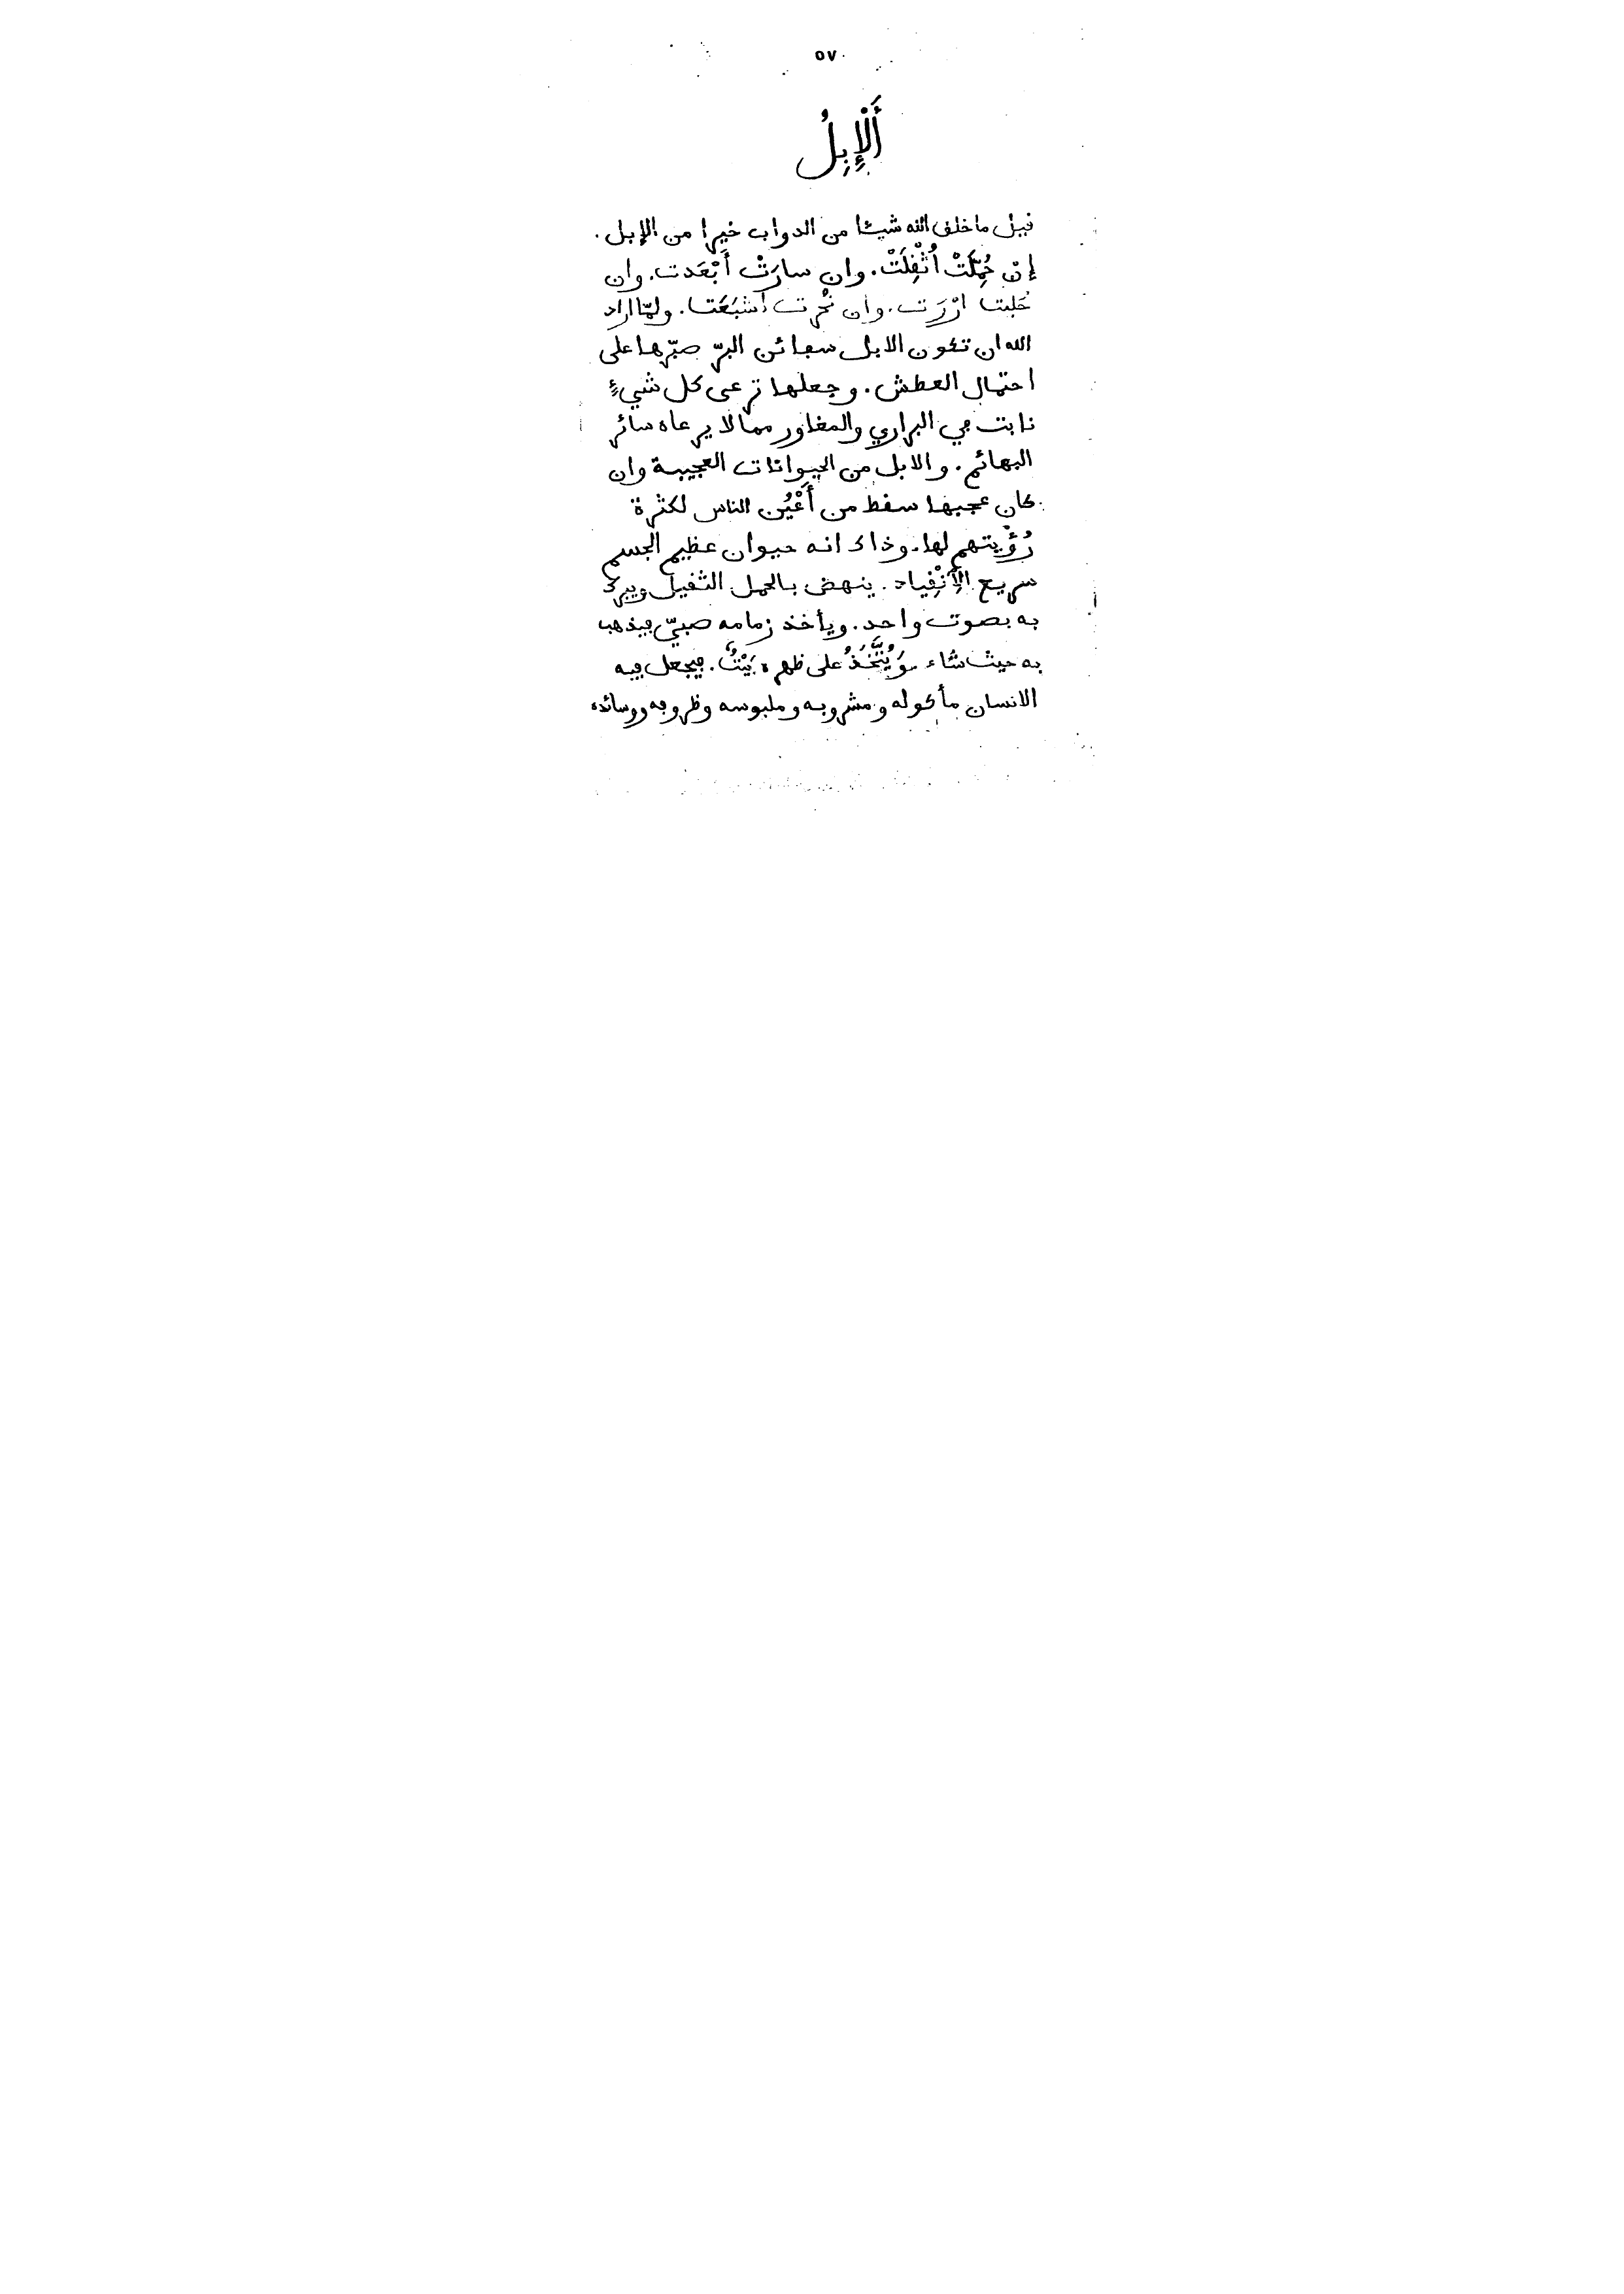 ٥٧
أَلْإِبِلُ
قيل ما خلق الله شيئا من الدواب خيرا من الإبل.
إنْ حُمِّلَتْ أُثْقِلَتْ. وان سارَتْ أَبْعَدت. وان
حُلبت ارْوَت. وان نُحرت اشبَعَت. ولمّا اراد
الله ان تكون الابل سفائن البرّ صبّرها على
احتمال العطش. وجعلها ترعى كل شيءٍ
نابت في البراري والمفاوز مما لا يرعاه سائر
البهائم. والابل من الحيوانات العجيبة وان
كان عجبها سقط من أَعْيُن الناس لكثرة
رُؤْيتهم لها. وذاك انه حيوان عظيم الجسم
سريع الاِنْقِياد. ينهض بالحمل الثقيل ويبرك
به بصوت واحد. ويأخذ زمامه صبيّ فيذهب
به حيث شاء. وَيُتَّخَذُ على ظهره بَيْتٌ. فيجعل فيه
الانسان مأكوله ومشروبه وملبوسه وظروفه ووسائده